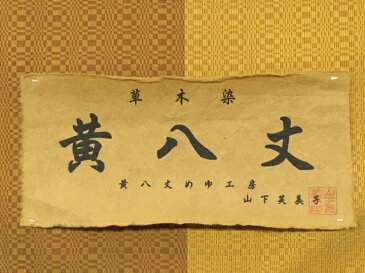 草木染
黄八丈
黄八丈めゆ工房
山下芙美子